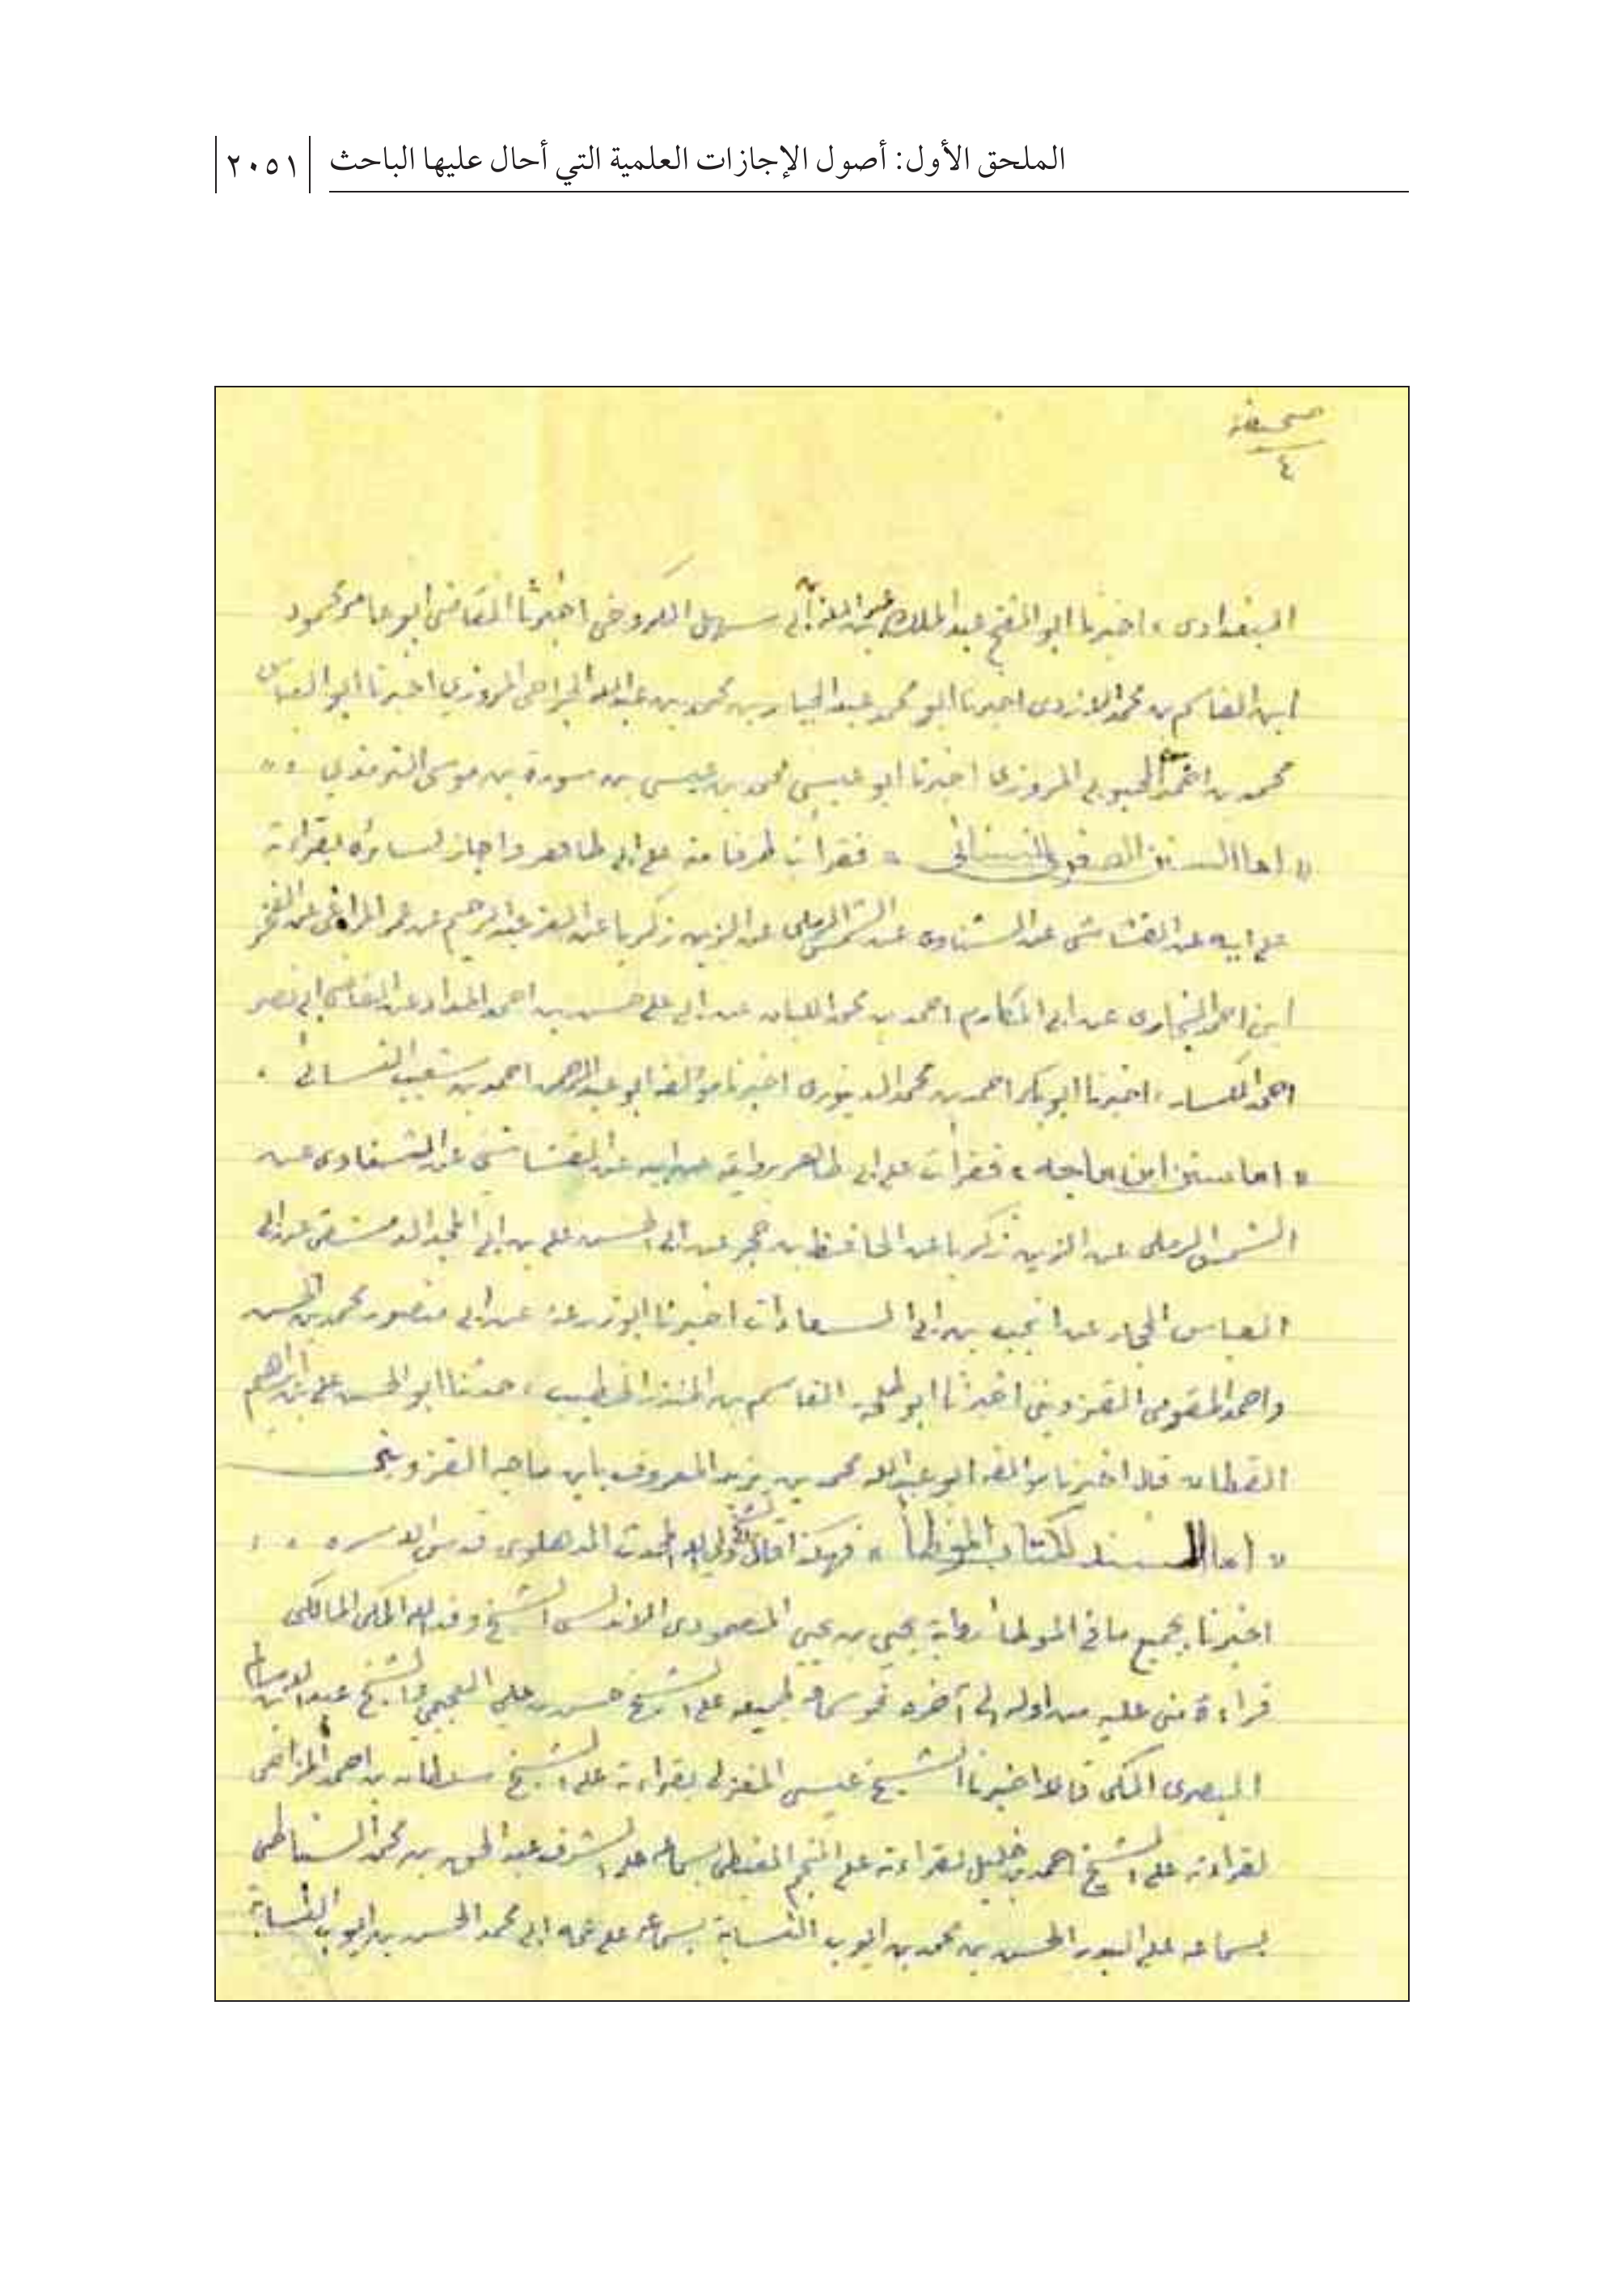 الملحق الأول: أصول الإجازات العلمية التي أحال عليها الباحث ٢٠٥١
صحيفة
٤
البغدادى، اخبرنا ابو الفتح عبد الملك بن ابى سهل الكروخى اخبرنا القاضى ابو عامر محمود
ابن القاسم بن محمد الازدى اخبرنا ابو محمد عبد الجبار بن محمد بن عبدالله الجراحى المروزي اخبرنا ابو العباس
محمد بن احمد المحبوبي المروزى اخبرنا ابو عيسى محمد بن عيسى بن سورة بن موسى الترمذي ،،
« اما السنن الصغرى للنسائى » فقرأت طرفا منه على ابى طاهر واجاز لسائره بقراءته
على ابيه عن القشاشى عن الشناوى عن الشمس الرملى عن الزين زكريا عن العز عبد الرحيم عن عمر المراغى عن الفخر
ابن احمد البخارى عن ابى المكارم احمد بن محمد اللبان عن ابى على حسن بن احمد الحداد عن القاضى ابى نصر
احمد الكسار، اخبرنا ابو بكر احمد بن محمد الدينورى اخبرنا مؤلفه ابو عبد الرحمن احمد بن شعيب النسائى .
« اما سنن ابن ماجه » فقرأت على ابى طاهر بروايته عن ابيه عن القشاشى عن الشناوى عن
الشمس الرملى عن الزين زكريا عن الحافظ بن حجر عن ابى الحسن على بن ابى المجد الدمشقى عن ابى
العباس الحجار عن انجب بن ابى السعادات اخبرنا ابو زرعة عن ابى منصور محمد بن الحسن
واحمد المقومى القزوينى اخبرنا ابو طلحه القاسم بن المنذر الخطيب، حدثنا ابو الحسن على بن ابراهيم
القطان قال اخبرنا مؤلفه ابو عبدالله محمد بن يزيد المعروف بابن ماجه القزوينى
« اما السند لكتاب الموطأ » فهكذا قال الشيخ ولي الله المحدث الدهلوى قدس الله سره . . .
اخبرنا بجميع ما فى الموطأ رواية يحيى بن يحيى المصمودى الاندلسى الشيخ وفد الله المكى المالكى
قراءة منى عليه من اوله الى آخره بحق سماعه لجميعه على الشيخ حسن بن علي العجيمي والشيخ عبدالله بن سالم
البصرى المكى قالا اخبرنا الشيخ عيسى المغربى بقراءته على الشيخ سلطان بن احمد المزاحى
بقراءته على الشيخ احمد بن خليل بقراءته على النجم الغيطى بسماعه على الشرف عبد الحق بن محمد السنباطى
بسماعه على البدر الحسن بن محمد بن ايوب النسابة بسماعه على عمه ابى محمد الحسن بن ايوب النسابة